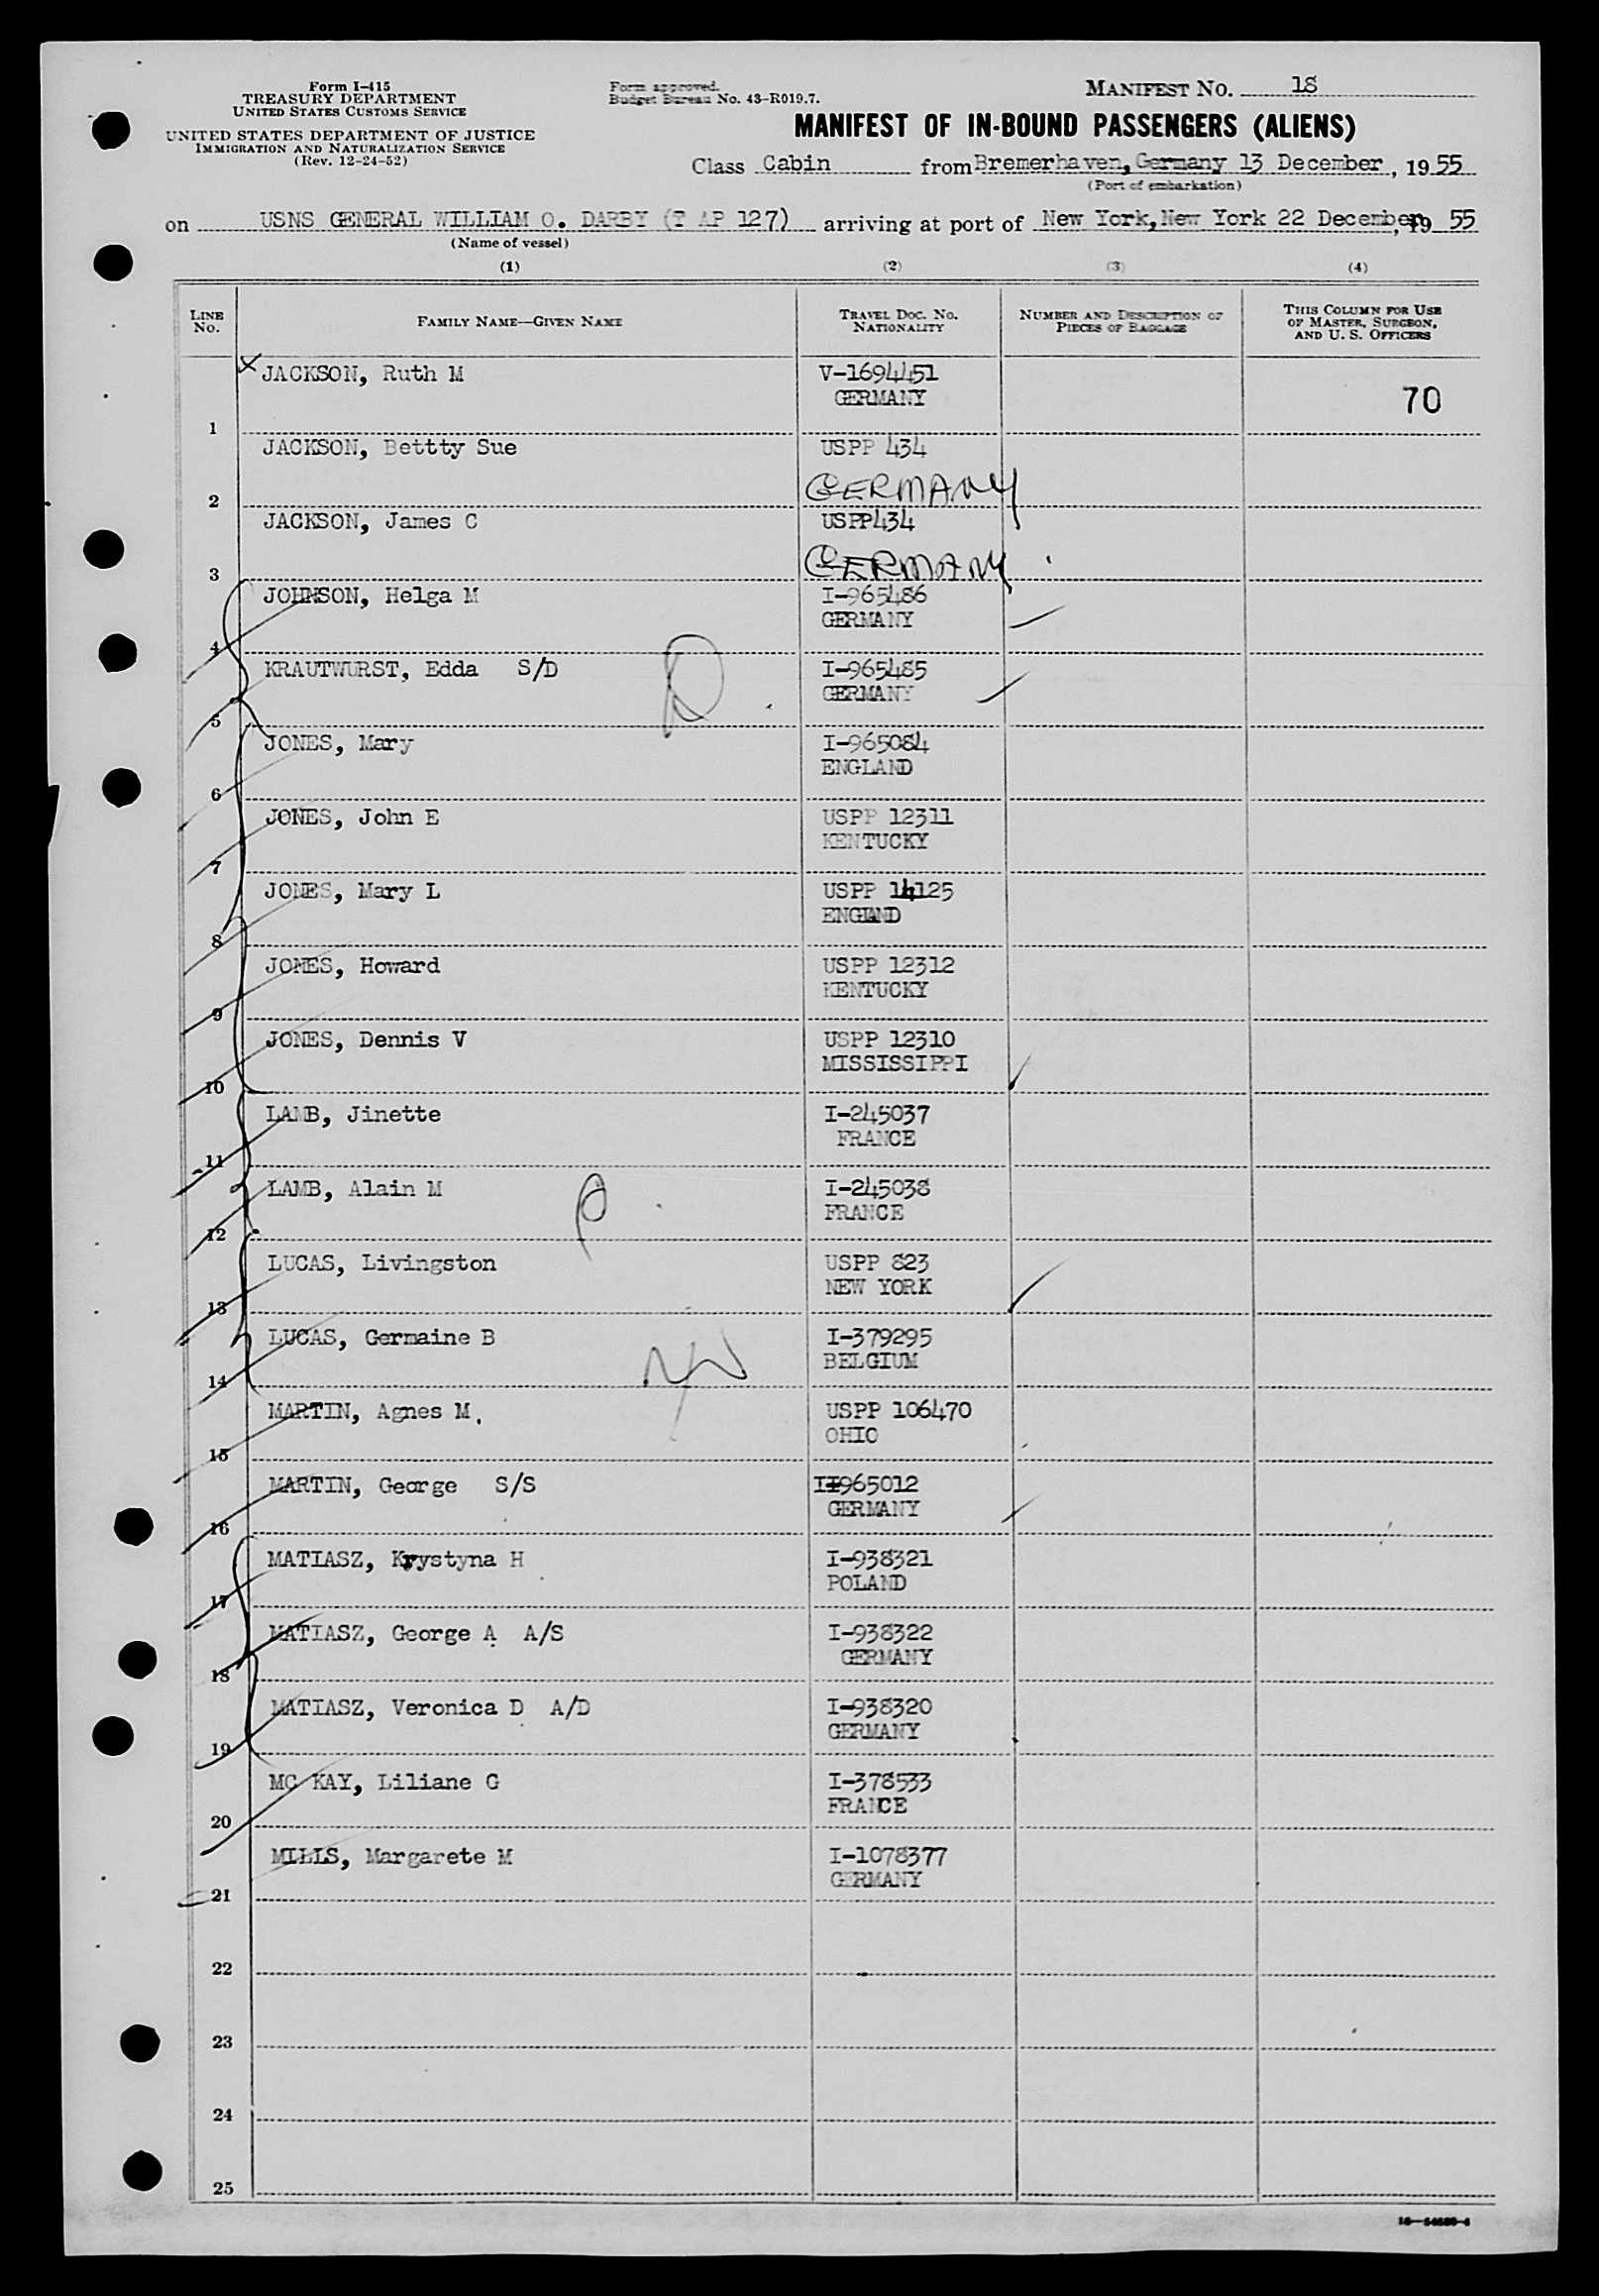 Form I-415
TREASURY DEPARTMENT
UNITED STATES CUSTOMS SERVICE
UNITED STATES DEPARTMENT OF JUSTICE
IMMIGRATION AND NATURALIZATION SERVICE
(Rev. 12-24-52)
Form approved.
Budget Bureau No. 43-R019.7.
MANIFEST NO. 18
MANIFEST OF IN-BOUND PASSENGERS (ALIENS)
Class Cabin from Bremerhaven, Germany 13 December, 19 55
(Port of embarkation)
on USNS GENERAL WILLIAM O. DARBY (T AP 127) arriving at port of New York, New York 22 December, 19 55
(Name of vessel)
(1) (2) (3) (4)
LINE NO. FAMILY NAME—GIVEN NAME TRAVEL DOC. NO. NATIONALITY NUMBER AND DESCRIPTION OF PIECES OF BAGGAGE THIS COLUMN FOR USE OF MASTER, SURGEON, AND U. S. OFFICERS
x JACKSON, Ruth M V-1694451
GERMANY 70
1
JACKSON, Bettty Sue USPP 434
2 GERMANY
JACKSON, James C USPP434
3 GERMANY
JOHNSON, Helga M I-965486
4 GERMANY
KRAUTWURST, Edda S/D I-965485
5 GERMANY
JONES, Mary I-965084
6 ENGLAND
JONES, John E USPP 12311
7 KENTUCKY
JONES, Mary L USPP 14125
8 ENGLAND
JONES, Howard USPP 12312
9 KENTUCKY
JONES, Dennis V USPP 12310
10 MISSISSIPPI
LAMB, Jinette I-245037
11 FRANCE
LAMB, Alain M I-245038
12 FRANCE
LUCAS, Livingston USPP 823
13 NEW YORK
LUCAS, Germaine B I-379295
14 BELGIUM
MARTIN, Agnes M. USPP 106470
15 OHIO
MARTIN, George S/S I-965012
16 GERMANY
MATIASZ, Krystyna H I-938321
17 POLAND
MATIASZ, George A A/S I-938322
18 GERMANY
MATIASZ, Veronica D A/D I-938320
19 GERMANY
MC KAY, Liliane G I-378533
20 FRANCE
MILLS, Margarete M I-1078377
21 GERMANY
22
23
24
25